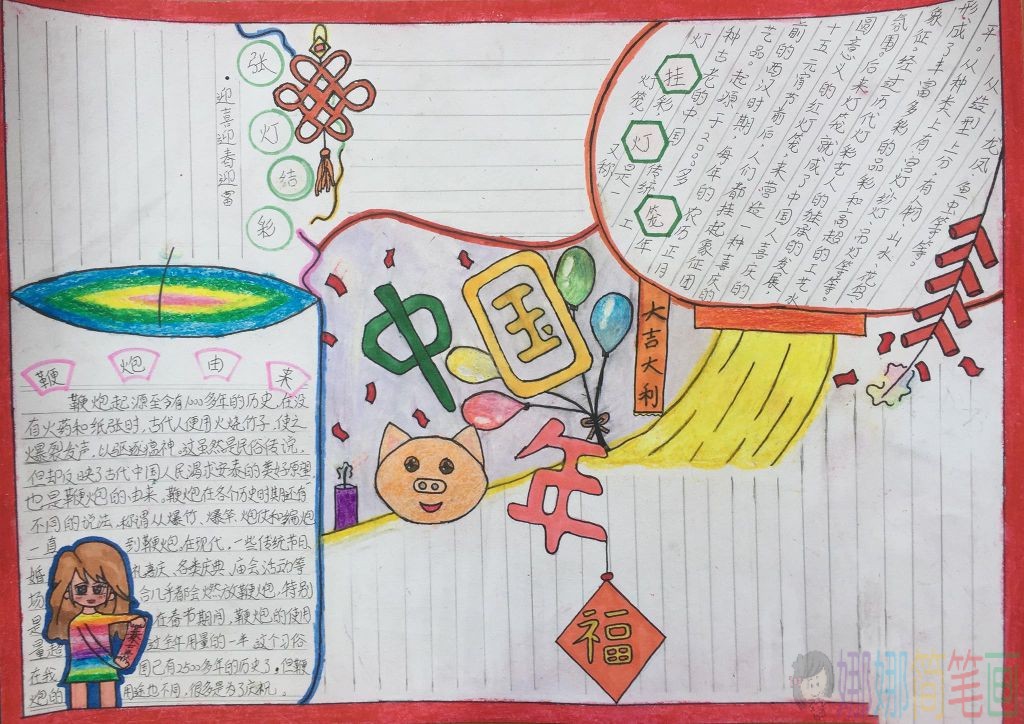 张
灯
结
彩
迎喜迎春迎富
挂
灯
笼
灯笼,又称
灯彩,是一
种古老的中国传统工
艺品。起源于2000多年
前的西汉时期,每年的农历正月
十五元宵节前后,人们都挂起象征团
圆意义的红灯笼,来营造一种喜庆的
氛围。后来灯笼就成了中国人喜庆的
象征。经过历代灯彩艺人的继承的发展,
形成了丰富多彩的品彩和高超的工艺水
平。从种类上有宫灯、纱灯、吊灯等等。
从造型上分,有人物、山水、花鸟、
龙凤、鱼虫等等。
中国
年
大吉大利
福
鞭炮由来
鞭炮起源至今有1000多年的历史,在没
有火药和纸张时,古代人便用火烧竹子,使之
爆裂发声,以驱逐瘟神。这虽然是民俗传说,
但却反映了古代中国人民渴求安泰的美好愿望,
也是鞭炮的由来。鞭炮在各个历史时期还有
不同的说法,称谓从爆竹、爆竿、炮仗和编炮
一直到鞭炮。在现代,一些传统节日、
婚礼喜庆、各类庆典、庙会活动等
场合几乎都会燃放鞭炮,特别
是在春节期间,鞭炮的使用
量超过全年用量的一半。这个习俗
在我国已有2500多年的历史了。但鞭
炮的用途也不同,很多是为了庆祝。
娜娜简笔画